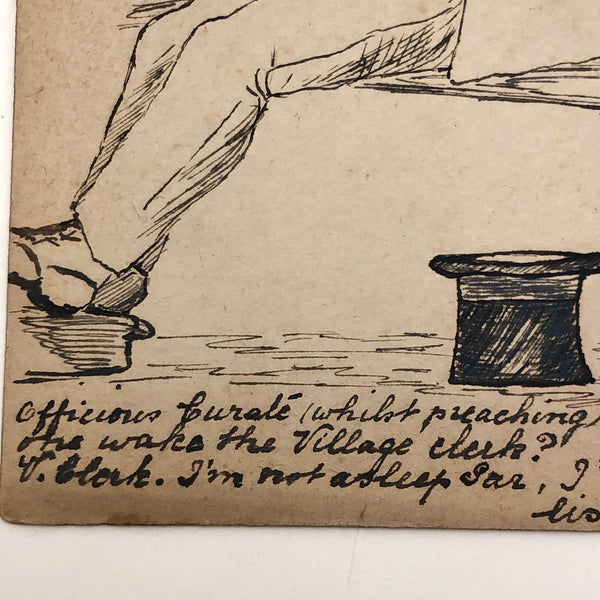 Officious Curaté (whilst preaching)
one wake the Village clerk?
V. Clerk. I'm not asleep Sar, I'
lis